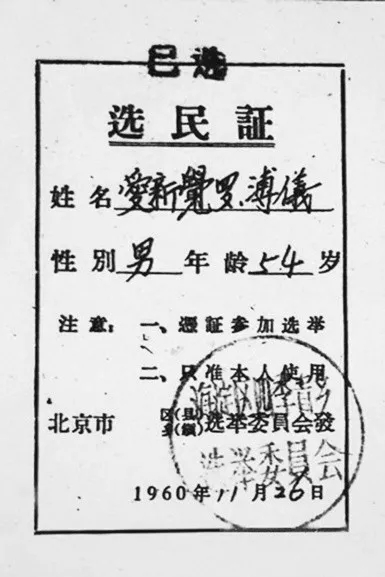 已选
选民証
姓名 愛新覺罗.溥儀
性別 男 年龄 54 岁
注意： 一、憑証参加选举
二、只准本人使用
北京市 区(县)乡(鎮)选举委員会發
选举委員会
1960年11月26日